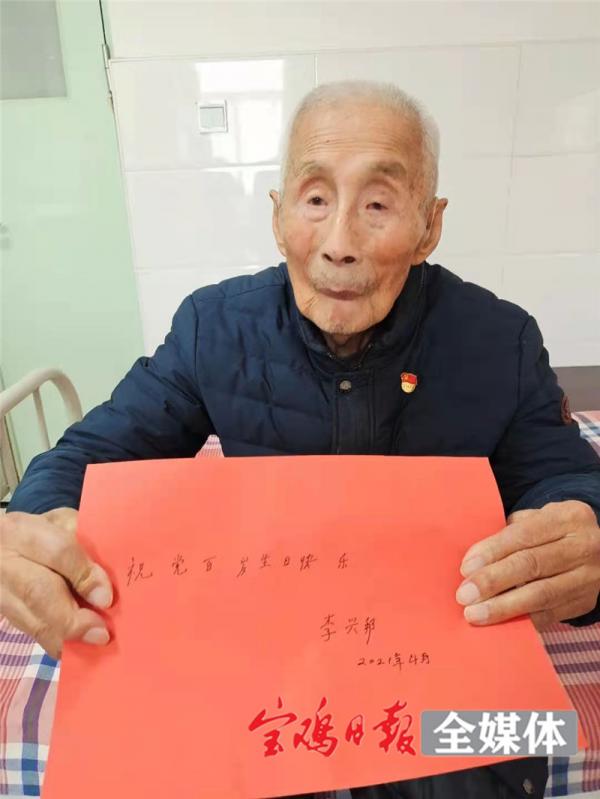 祝党百岁生日快乐
李兴邦
2021年4月
宝鸡日报 全媒体